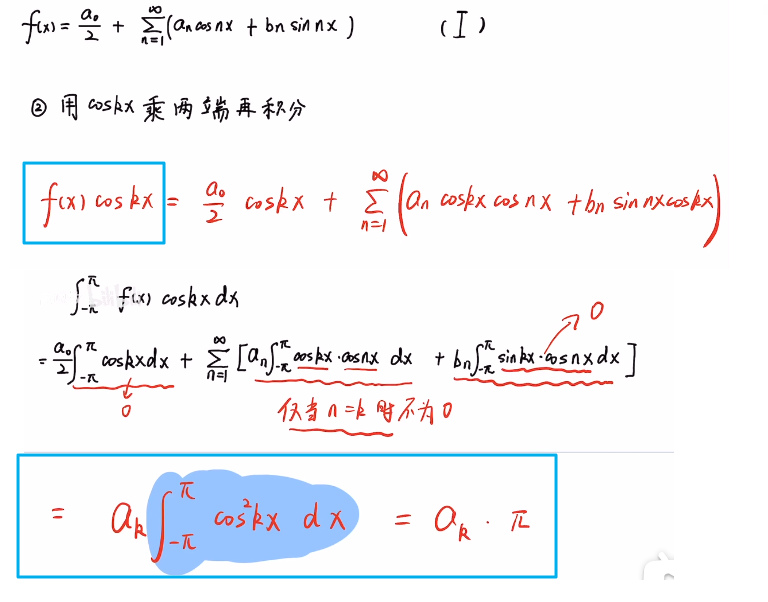 f(x) = a₀/2 + ∑_{n=1}^{∞} (aₙ cos nx + bₙ sin nx) (I)
② 用 cos kx 乘两端再积分
f(x) cos kx = a₀/2 cos kx + ∑_{n=1}^{∞} (aₙ cos kx cos nx + bₙ sin nx cos kx)
∫_{-π}^{π} f(x) cos kx dx
0
= a₀/2 ∫_{-π}^{π} cos kx dx + ∑_{n=1}^{∞} [aₙ ∫_{-π}^{π} cos kx · cos nx dx + bₙ ∫_{-π}^{π} sin kx · cos nx dx]
0 仅当 n = k 时不为 0
= a_k ∫_{-π}^{π} cos² kx dx = a_k · π